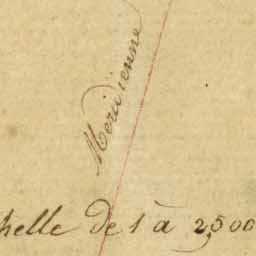 Meridienne
helle de 1 à 2,500